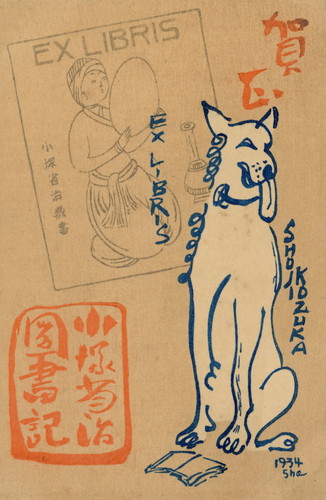 EX LIBRIS
賀正
EX LIBRIS
小塚省治蔵書
SHOJI KOZUKA
小塚省治
図書記
1934
Sho